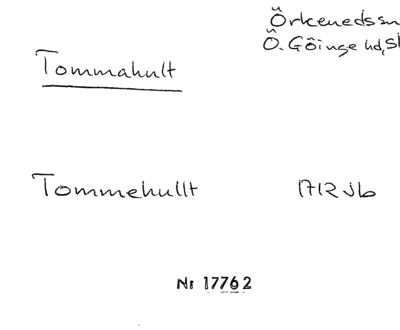 Örkenedssn
Ö. Göinge hd, Sk
Tommahult
Tommehullt 1712 Jb
Nr 17762